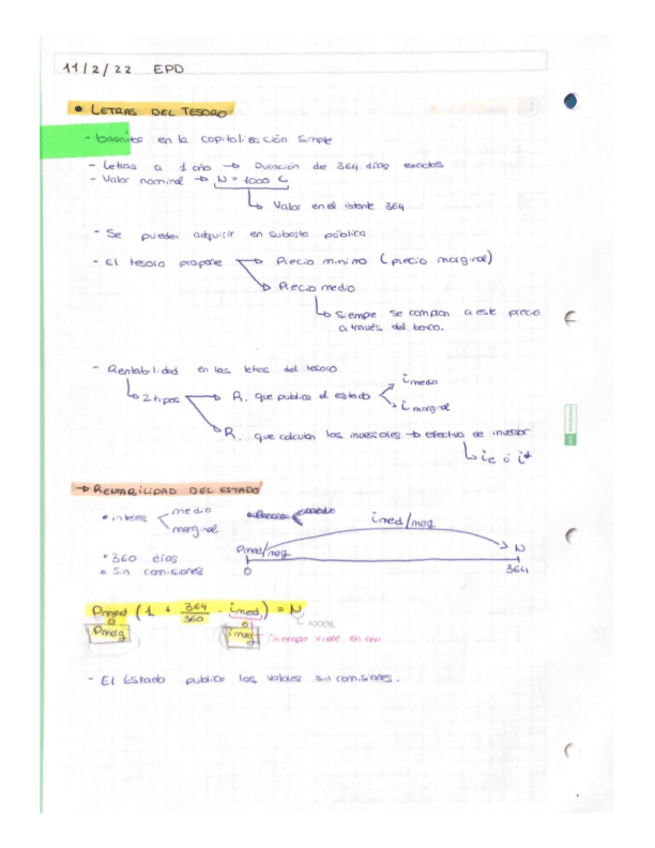 11/2/22 EPD
• LETRAS DEL TESORO
- basados en la capitalización simple
- Letras a 1 año → Duración de 364 días exactos
- Valor nominal → N = 1000 €
↳ Valor en el istante 364
- Se pueden adquirir en subasta pública
- El tesoro propone → Precio mínimo (precio marginal)
→ Precio medio
↳ Siempre se compran a este precio
a través del banco.
- Rentabilidad en las letras del tesoro
↳ 2 tipos → R. que publica el estado < i medio
i marginal
→ R. que calculan los inversores → efectivo de inversor
↳ ie ó i*
→ RENTABILIDAD DEL ESTADO
• interes < medio
marginal
• 360 días
• Sin comisiones
imed/marg
Pmed/marg
N
0
364
Pmed (1 + 364/360 · imed) = N
ó ó 1000€
Pmarg imarg Siempre viene en año
- El Estado publica los valores sin comisiones.